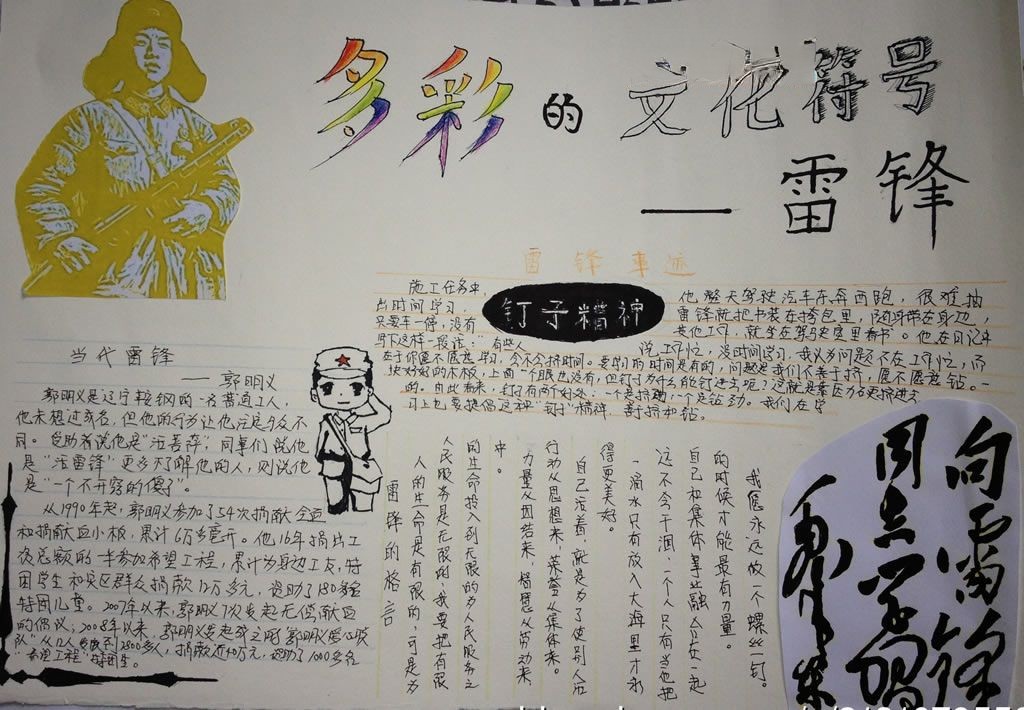 多彩的文化符号
—雷锋
雷锋事迹
钉子精神
施工任务中,他整天驾驶汽车东奔西跑,很难抽
出时间学习,雷锋就把书装在挎包里,随身带在身边,
只要车一停,没有其他工作,就坐在驾驶室里看书。他在日记中
写下这样一段话:“有些人说工作忙,没时间学习,我认为问题不在工作忙,而
在于你愿不愿意学习,会不会挤时间。要学习的时间是有的,问题是我们善不善于挤,愿不愿意钻。一
块好好的木板,上面一个眼也没有,但钉子为什么能钉进去呢?这就是靠压力硬挤进去
的。由此看来,钉子有两个好处:一个是挤劲,一个是钻劲。我们在学
习上也要提倡这种“钉子”精神,善于挤和钻。
当代雷锋
——郭明义
郭明义是辽宁鞍钢的一名普通工人,
他未想过成名,但他的行为让他注定与众不
同。受助者说他是“活菩萨”;同事们说他
是“活雷锋”更多不了解他的人,则说他
是“一个不开窍的傻子”。
从1990年起,郭明义参加了54次捐献全血
和捐献血小板,累计6万多毫升。他16年捐出工
资总额的一半参加希望工程,累计为身边工友,特
困学生和灾区群众捐款12万多元,资助了180多名
特困儿童。2007年以来,郭明义7次发起无偿献血
的倡议;2008年以来,郭明义发起成立的“郭明义爱心联
队”从12人发展到2800多人,捐款近40万元,资助了1000多名
“希望工程”特困生。
雷锋的格言
人的生命是有限的,可是为
人民服务是无限的,我要把有限
的生命投入到无限的为人民服务之
中。
力量从团结来,智慧从劳动来,
行动从思想来,荣誉从集体来。
自己活着,就是为了使别人活
得更美好。
一滴水只有放入大海里才永
远不会干涸,一个人只有当他把
自己和集体事业融合在一起
的时候才能最有力量。
我愿永远做一个螺丝钉。
向雷锋
同志学习
毛泽东